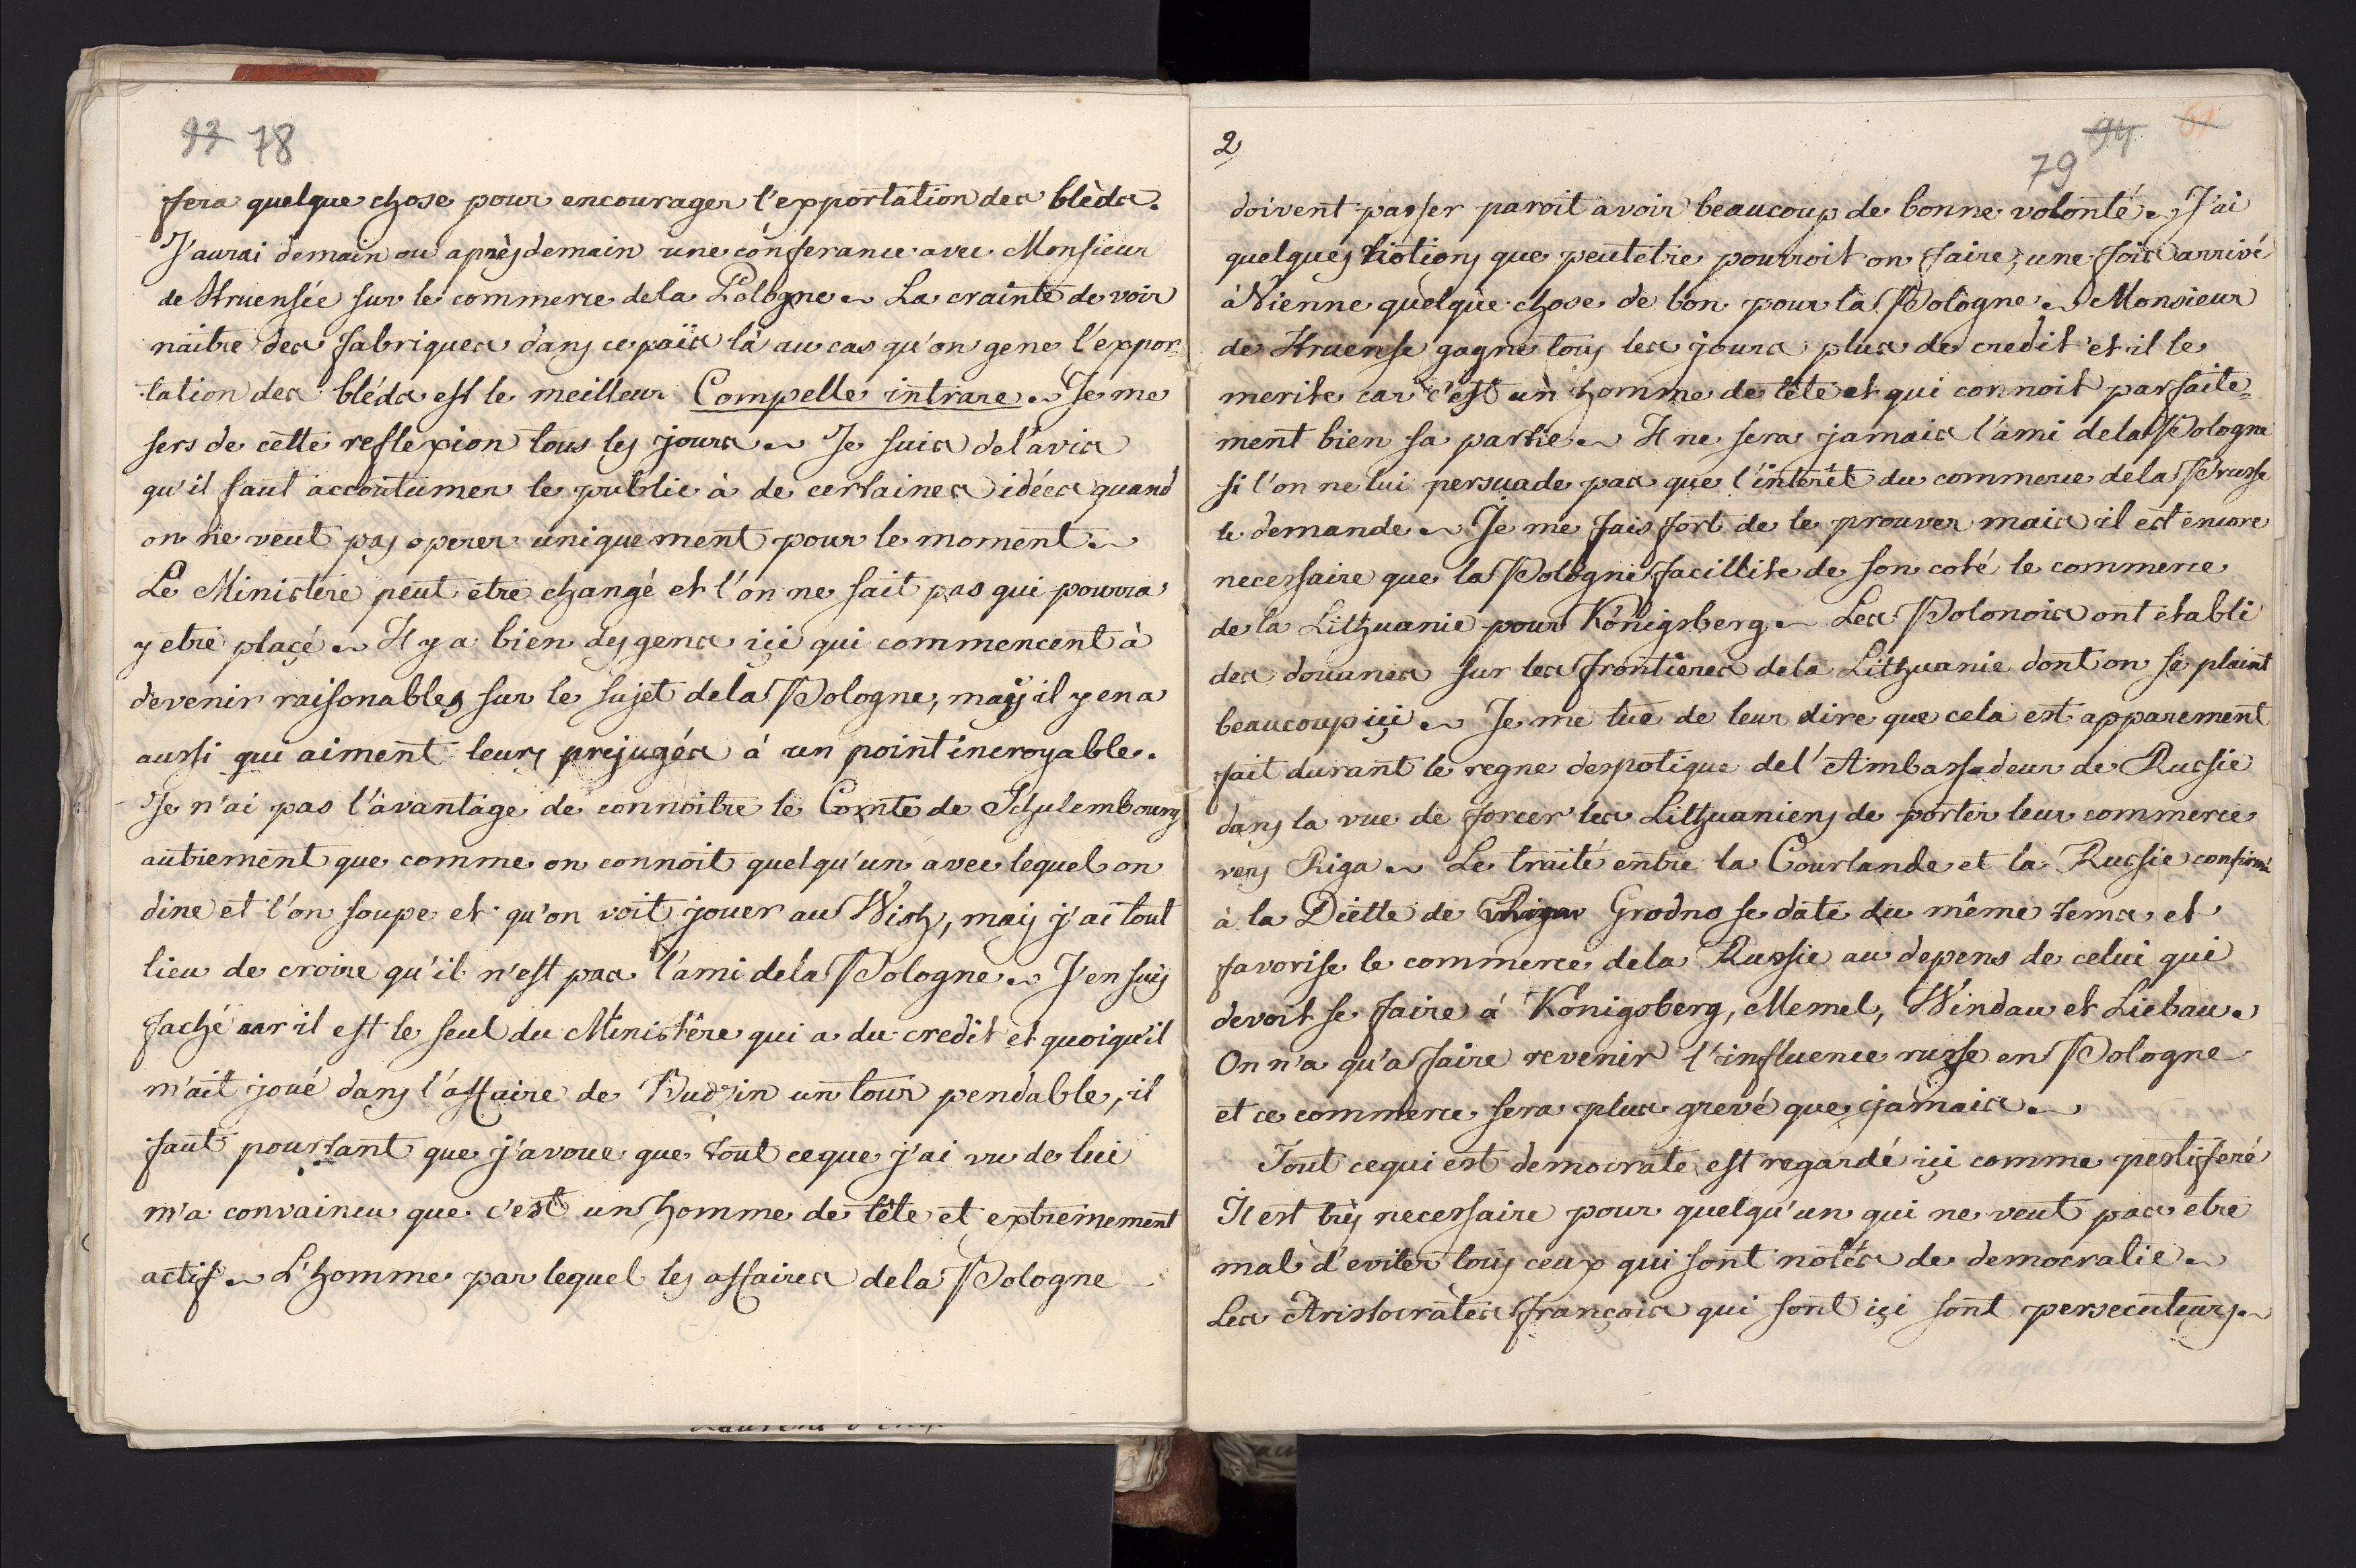 93 78
fera quelque chose pour encourager l'exportation des blèds.
J'aurai demain ou aprèsdemain une conferance avec Monsieur
de Struensée sur le commerce dela Pologne. La crainte de voir
naitre des fabriques dans ce païs là au cas qu'on gene l'expor-
tation des bléds est le meilleur Compelle intrare. Je me
sers de cette reflexion tous les jours. Je suis del'avis
qu'il faut accoutumer le public à de certaines idées quand
on ne veut pas operer uniquement pour le moment.
Le Ministère peut etre changé et l'on ne sait pas qui pourra
y etre plaçé. Il y a bien des gens içi qui commencent à
devenir raisonables sur le sujet dela Pologne, mais il y en a
aussi qui aiment leurs prejugés à un point incroyable.
Je n'ai pas l'avantage de connoitre le Comte de Schulembourg
autrement que comme on connoit quelqu'un avec lequel on
dine et l'on soupe et qu'on voit jouer au Wish, mais j'ai tout
lieu de croire qu'il n'est pas l'ami dela Pologne. J'en suis
faché car il est le seul du Ministère qui a du credit et quoiqu'il
m'ait joué dans l'affaire de Budzin un tour pendable, il
faut pourtant que j'avoue que tout ceque j'ai vu de lui
m'a convaincu que c'est un homme de tête et extremement
actif. L'homme par lequel les affaires dela Pologne
2
79 94 61
doivent passer paroit avoir beaucoup de bonne volonté. J'ai
quelques notions que peutetre pourroit on faire, une fois arrivé
à Vienne quelque chose de bon pour la Pologne. Monsieur
de Struense gagne tous les jours plus de credit et il le
merite car c'est un homme de tête et qui connoit parfaite=
ment bien sa partie. Il ne sera jamais l'ami dela Pologne
si l'on ne lui persuade pas que l'intérêt du commerce dela Prusse
le demande. Je me fais fort de le prouver mais il est encore
necessaire que la Pologne facillite de son coté le commerce
de la Lithuanie pour Königsberg. Les Polonois ont etabli
des douanes sur les frontieres dela Lithuanie dont on se plaint
beaucoup içi. Je me tue de leur dire que cela est apparement
fait durant le regne despotique del'Ambassadeur de Russie
dans la vue de forcer les Lithuaniens de porter leur commerce
vers Riga. Le traité entre la Courlande et la Russie confirmé
à la Diette de Grodno se date du même tems et
favorise le commerce dela Russie au depens de celui qui
devoit se faire à Königsberg, Memel, Windau et Liebau.
On n'a qu'a faire revenir l'influence russe en Pologne
et ce commerce sera plus grevé que jamais.
Tout cequi est democrate est regardé içi comme pestiferé
Il est très necessaire pour quelqu'un qui ne veut pas etre
mal d'eviter tous ceux qui sont notés de democratie.
Les Aristocrates françois qui sont içi sont persecuteurs.